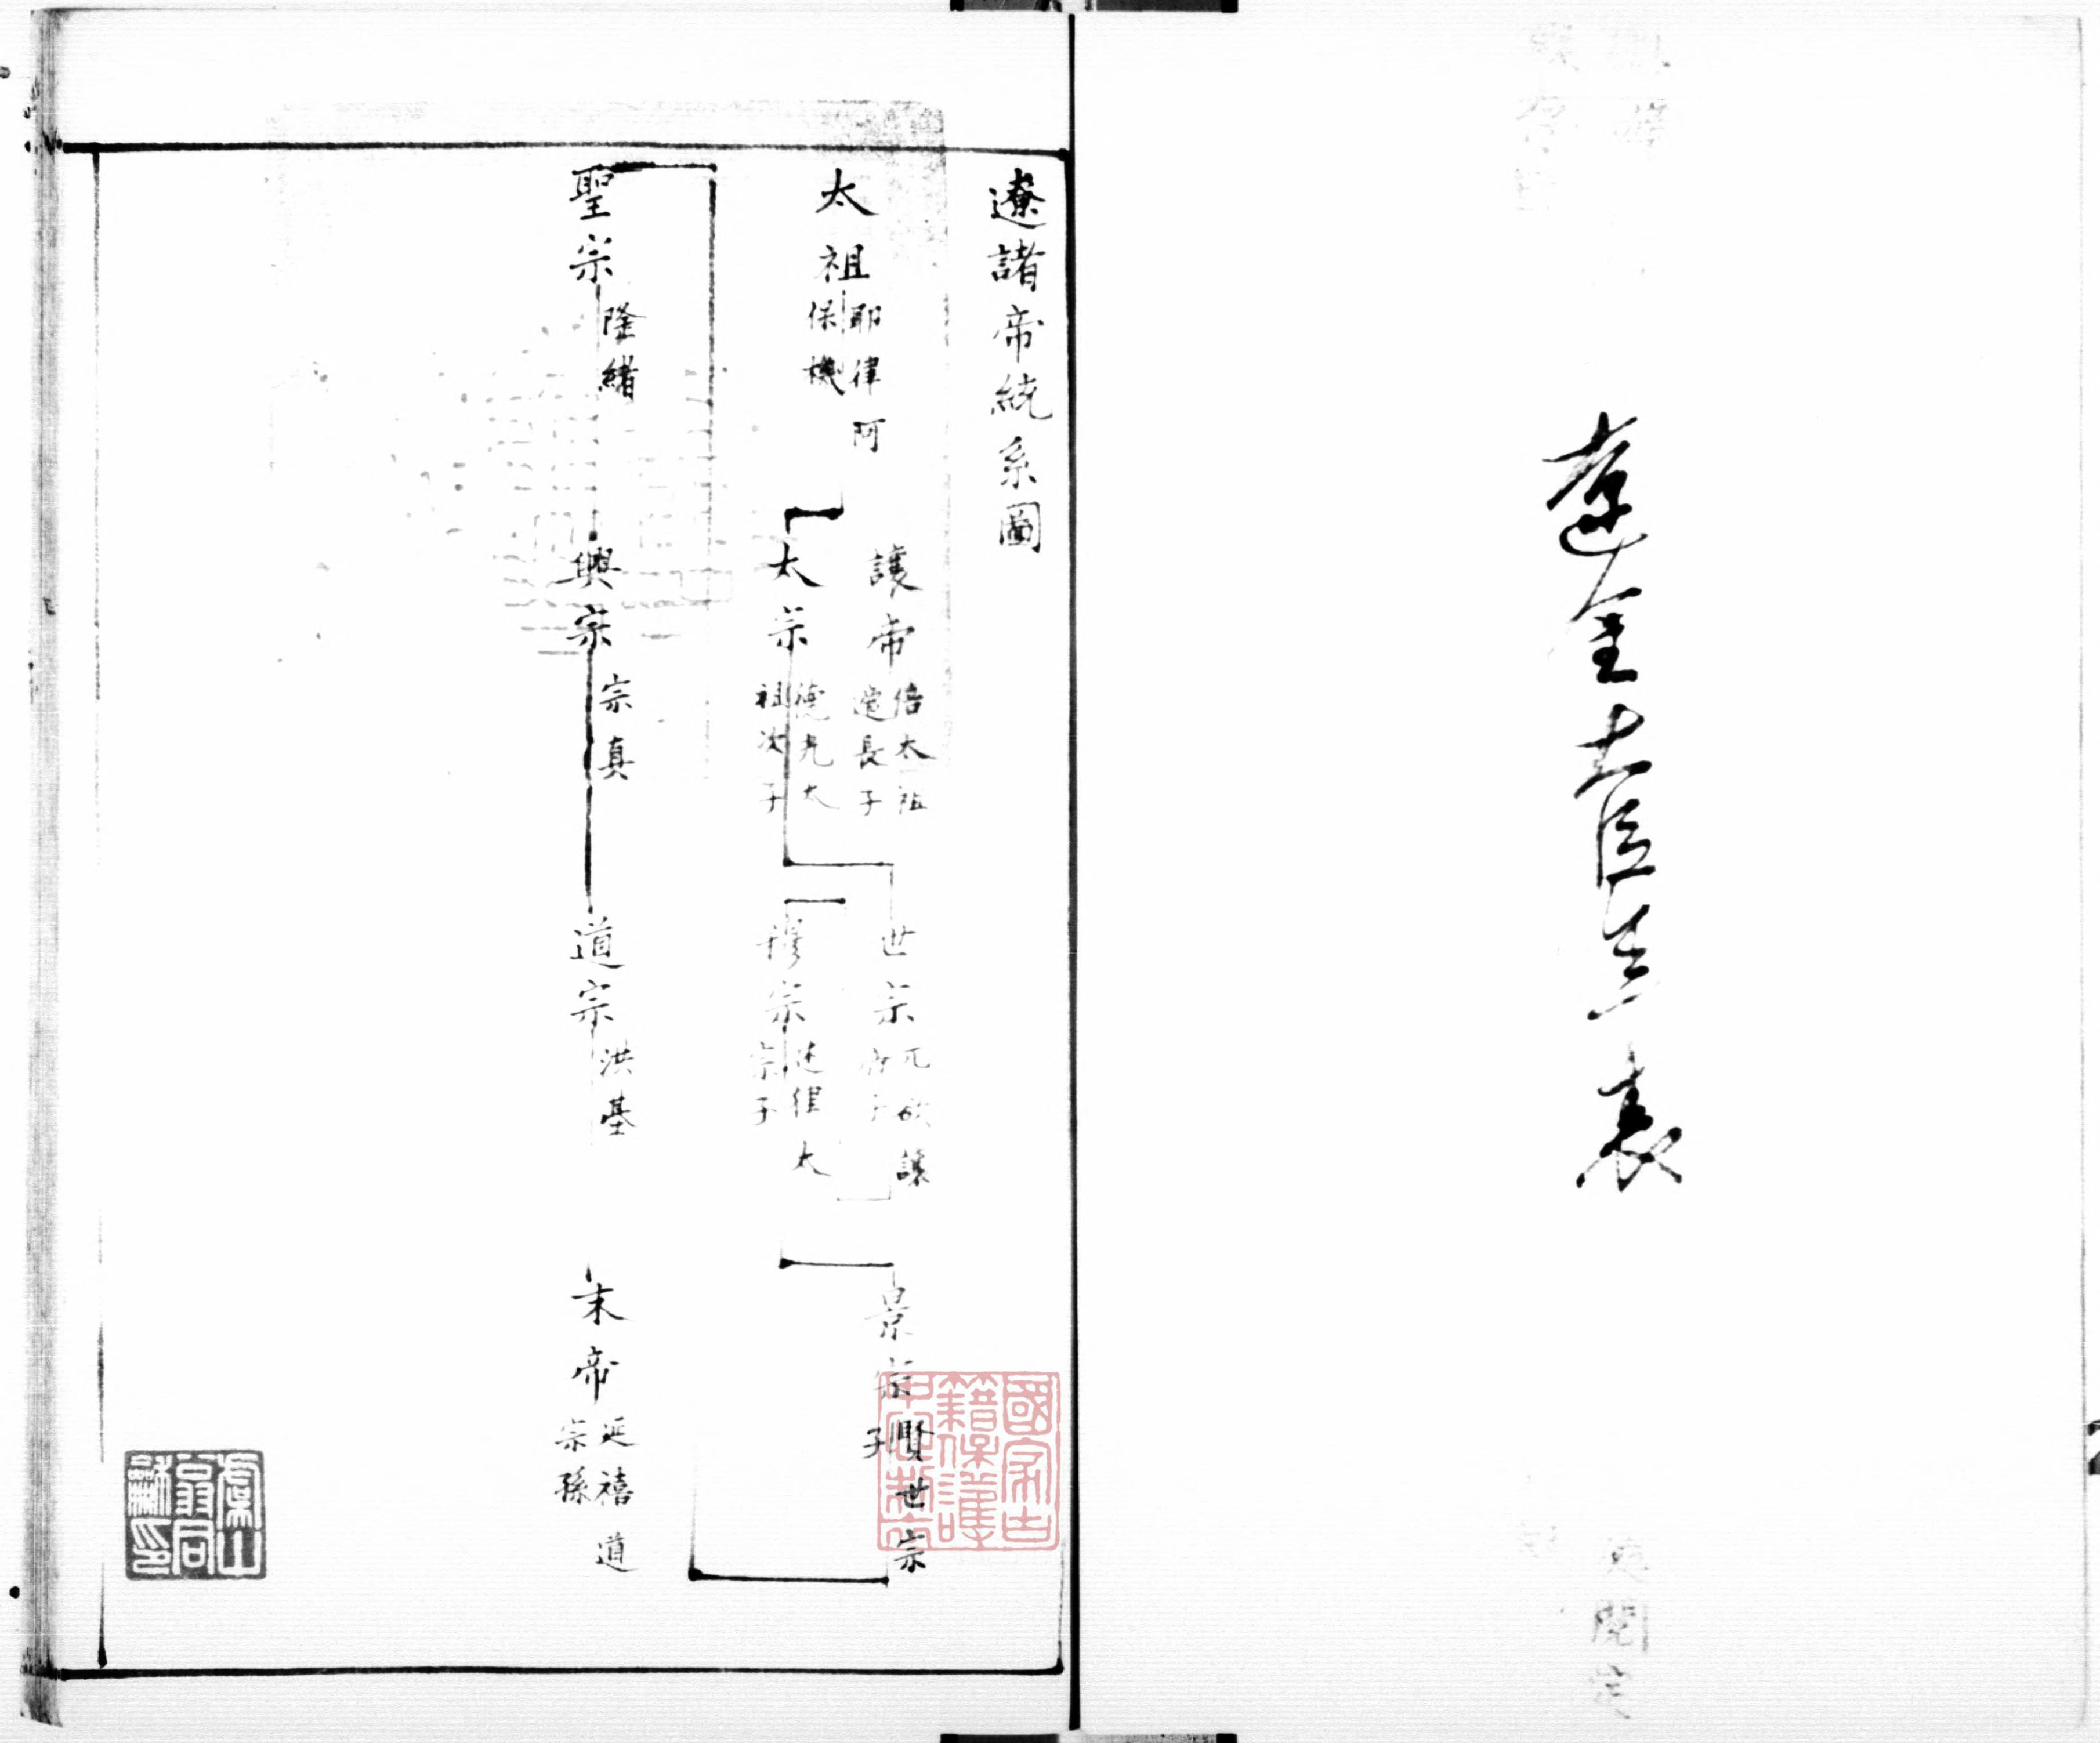 遼金大臣年表
遼諸帝統系圖
太祖 耶律阿保機
讓帝 倍太祖 長子
太宗 德光太祖次子
世宗 兀欲讓帝子
穆宗 述律太宗子
景宗 賢世宗子
聖宗 隆緒
興宗 宗真
道宗 洪基
末帝 延禧道宗孫
國家古籍保護中心製